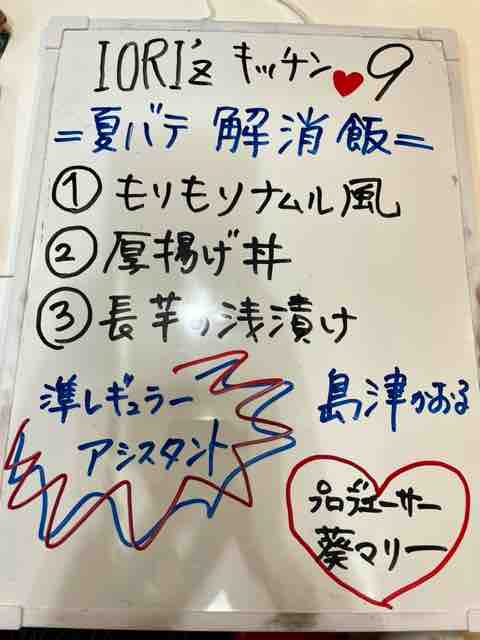 IORI'z キッチン♥9
=夏バテ 解消飯=
① もりもりナムル風
② 厚揚げ丼
③ 長芋の浅漬け
準レギュラー
アシスタント
島津かおる
プロデューサー
葵マリー